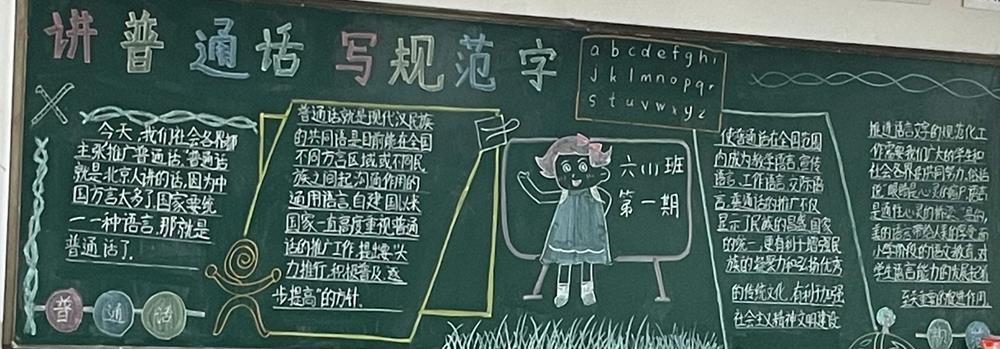 讲普通话 写规范字
a b c d e f g h i
j k l m n o p q r
s t u v w x y z
今天,我们社会各界都
主张推广普通话.普通话
就是北京人讲的话,因为中
国方言太多了,国家要统
一一种语言,那就是
普通话了.
普通话就是现代汉民族
的共同语,是目前能在全国
不同方言区域或不同民
族之间起沟通作用的
通用语言.自建国以来
国家一直高度重视普通
话的推广工作,提出要"大
力推行,积极普及,逐
步提高"的方针.
六(1)班
第一期
使普通话在全国范围
内成为教学语言,宣传
语言,工作语言,交际语
言,普通话的推广不仅
显示了民族的昌盛,国家
的统一,更有利于增强民
族的凝聚力和弘扬优秀
的传统文化,有利于加强
社会主义精神文明建设
推进语言文字的规范化工
作需要我们广大的学生和
社会各界的共同努力,俗话
说"眼睛是心灵的窗户,语言
是通往心灵的桥梁"
小学阶段的语文教育,对
学生语言能力的发展起着
至关重要的促进作用.
普通话